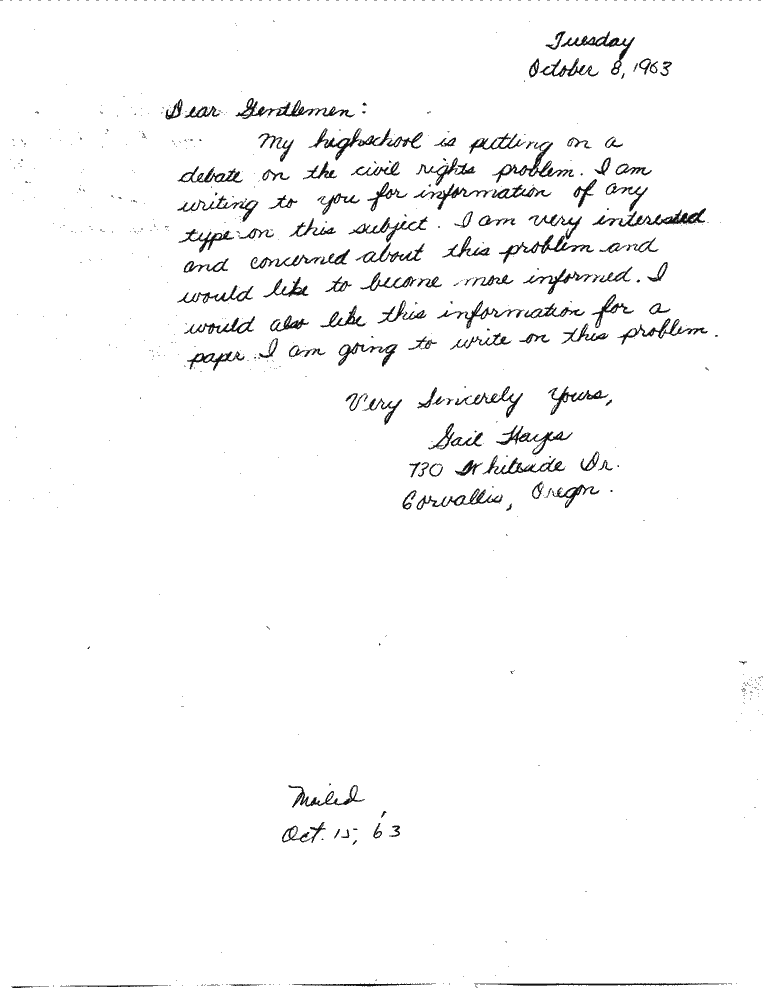 Tuesday
October 8, 1963
Dear Gentlemen:
My highschool is putting on a
debate on the civil rights problem. I am
writing to you for information of any
type on this subject. I am very interested
and concerned about this problem and
would like to become more informed. I
would also like this information for a
paper I am going to write on this problem.
Very Sincerely Yours,
Gail Hayes
730 Whiteside Dr.
Corvallis, Oregon.
Mailed
Oct. 15, '63